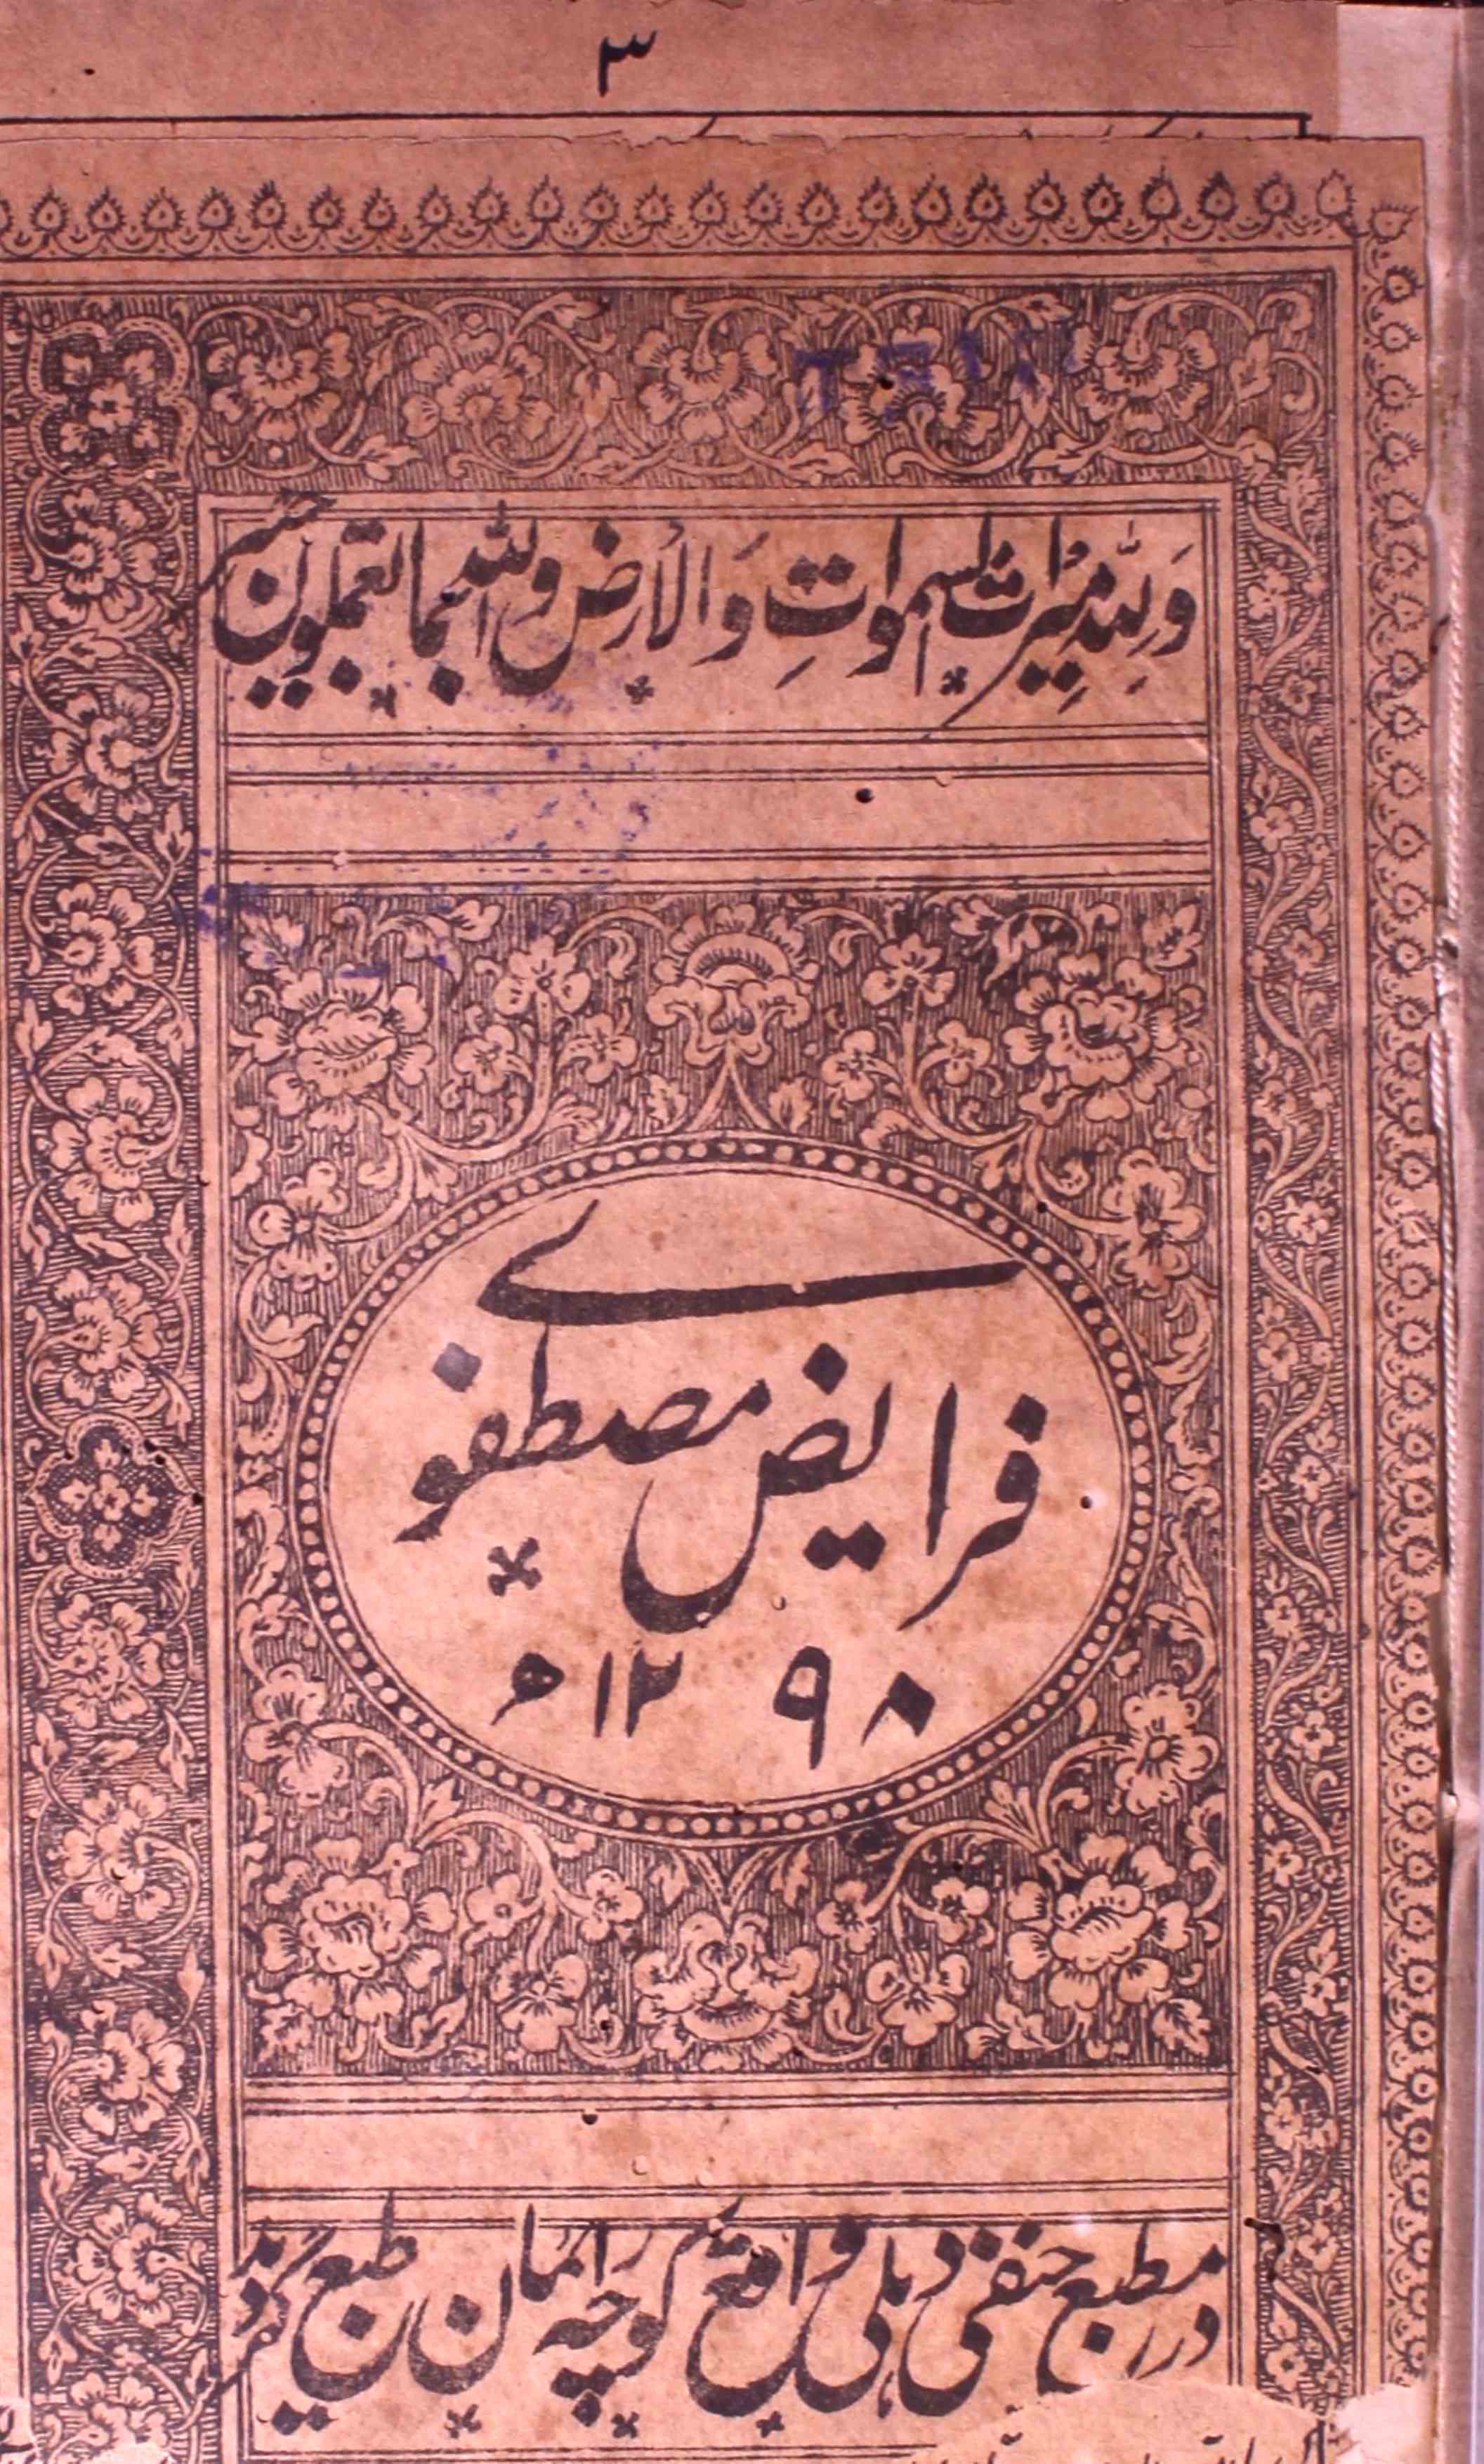 ۳
وَلِلّٰهِ مِيْرَاثُ السموات وَالاَرض وَالله بما تعملون خبير
فرایض مصطفوے
۱۲۹۸ھ
در مطبع حنفی دہلی واقع کوچہ رائمان طبع گردید